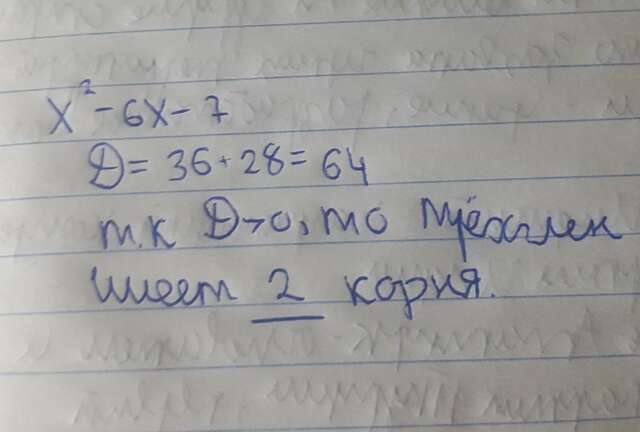 x² - 6x - 7
D = 36 + 28 = 64
т.к D>0, то трёхчлен
имеет 2 корня.